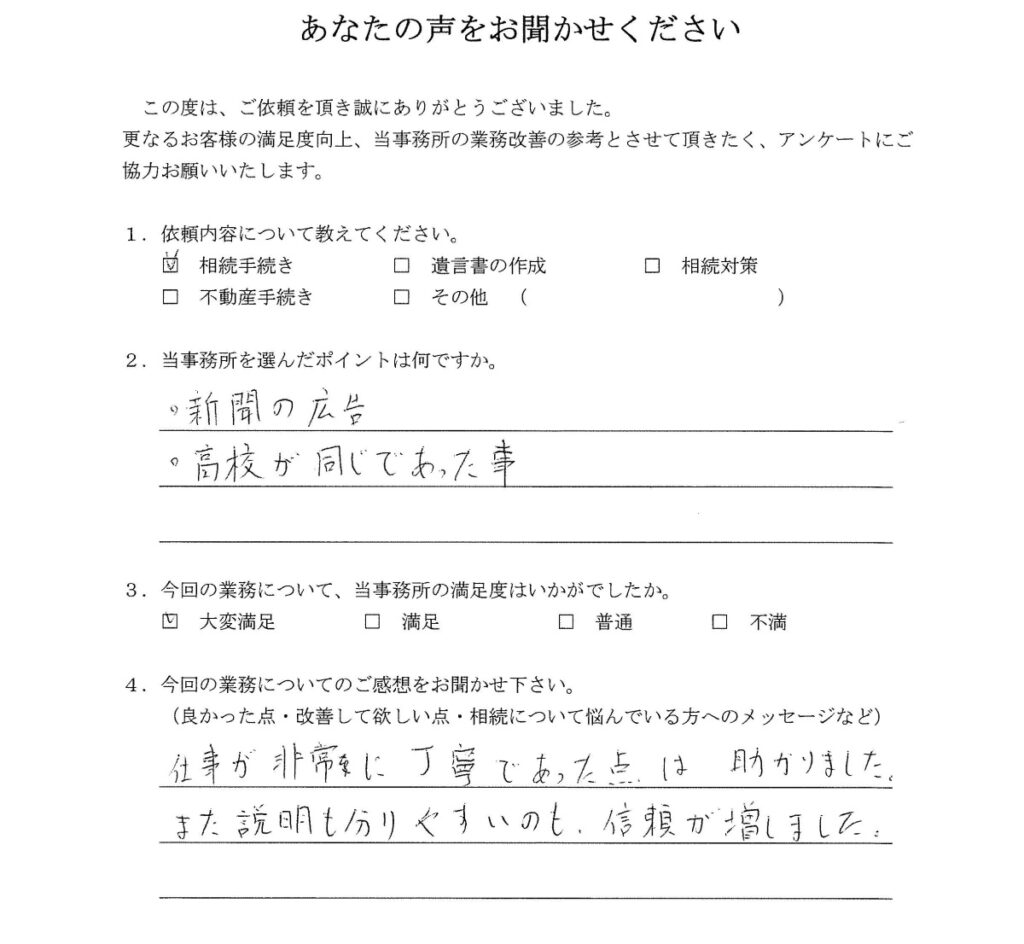 あなたの声をお聞かせください
この度は、ご依頼を頂き誠にありがとうございました。
更なるお客様の満足度向上、当事務所の業務改善の参考とさせて頂きたく、アンケートにご
協力お願いいたします。
１．依頼内容について教えてください。
☑ 相続手続き □ 遺言書の作成 □ 相続対策
□ 不動産手続き □ その他 （ ）
２．当事務所を選んだポイントは何ですか。
。新聞の広告
。高校が同じであった事
３．今回の業務について、当事務所の満足度はいかがでしたか。
☑ 大変満足 □ 満足 □ 普通 □ 不満
４．今回の業務についてのご感想をお聞かせ下さい。
（良かった点・改善して欲しい点・相続について悩んでいる方へのメッセージなど）
仕事が非常に丁寧であった点は 助かりました。
また説明も分りやすいのも、信頼が増しました。